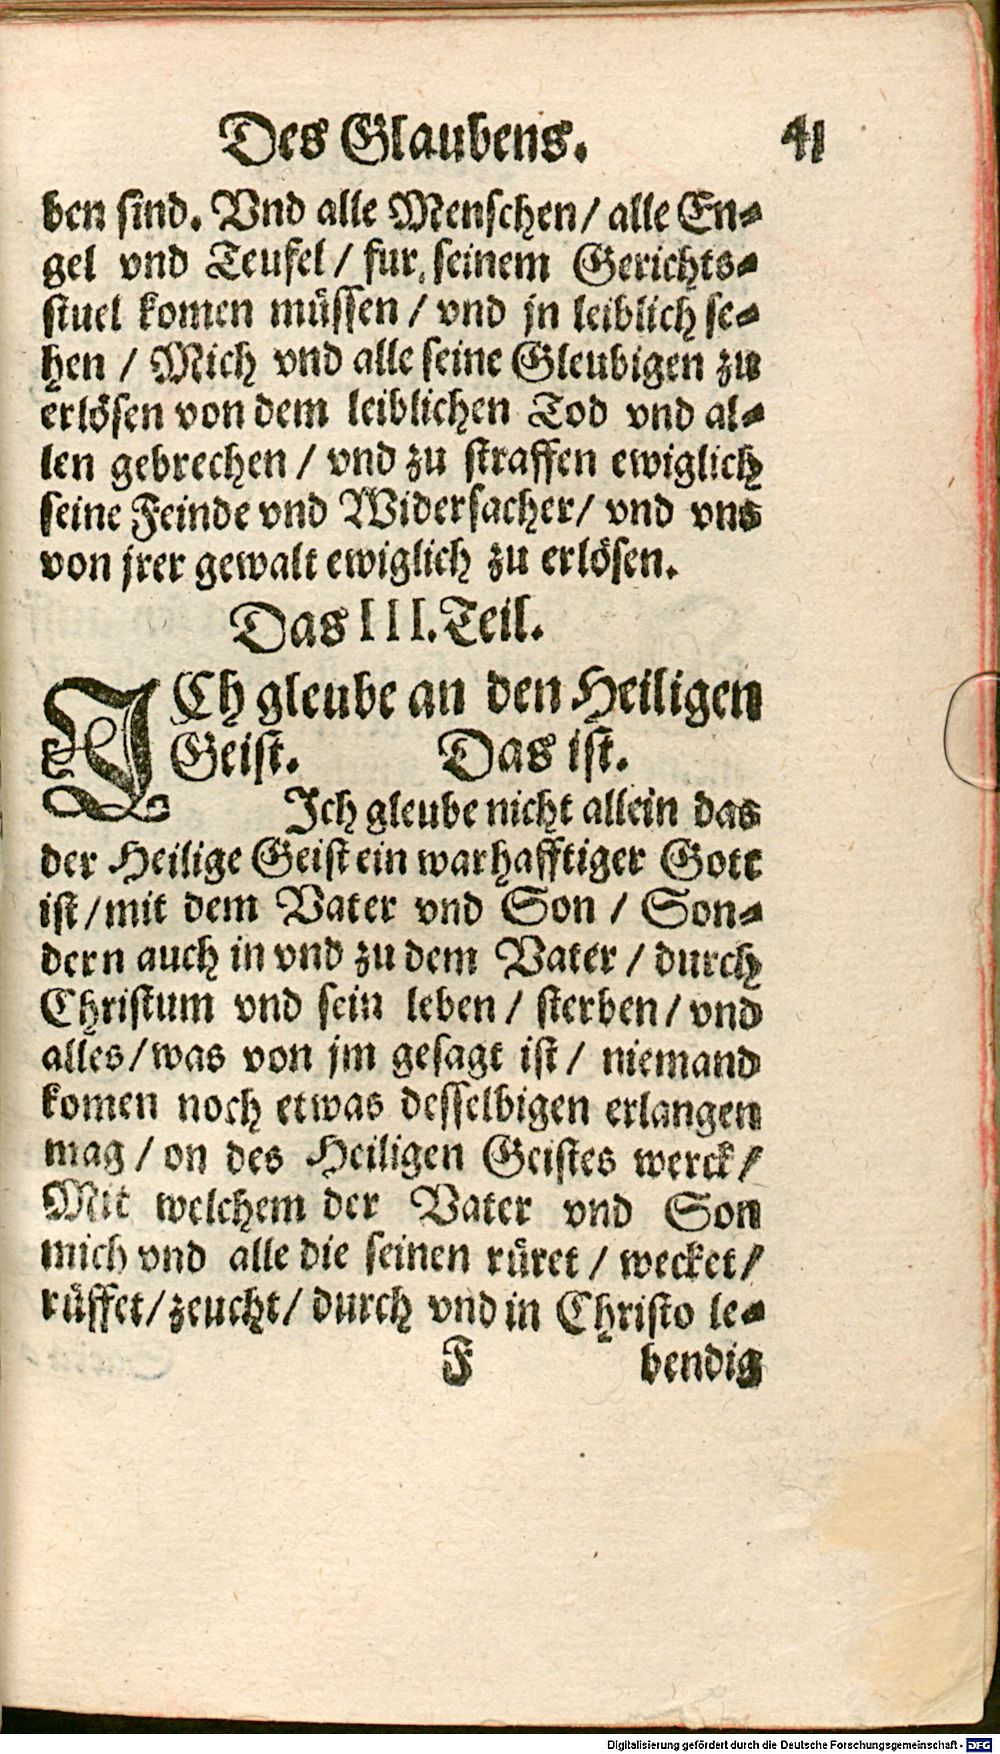 Des Glaubens. 41
ben sind. Vnd alle Menschen / alle En-
gel vnd Teufel / fur seinem Gerichts-
stuel komen müssen / vnd jn leiblich se-
hen / Mich vnd alle seine Gleubigen zu
erlösen von dem leiblichen Tod vnd al-
len gebrechen / vnd zu straffen ewiglich
seine Feinde vnd Widersacher / vnd vns
von jrer gewalt ewiglich zu erlösen.
Das III. Teil.
ICh gleube an den Heiligen
Geist. Das ist.
Ich gleube nicht allein das
der Heilige Geist ein warhafftiger Gott
ist / mit dem Vater vnd Son / Son-
dern auch in vnd zu dem Vater / durch
Christum vnd sein leben / sterben / vnd
alles / was von jm gesagt ist / niemand
komen noch etwas desselbigen erlangen
mag / on des Heiligen Geistes werck /
Mit welchem der Vater vnd Son
mich vnd alle die seinen rüret / wecket /
rüffet / zeucht / durch vnd in Christo le-
F bendig
Digitalisierung gefördert durch die Deutsche Forschungsgemeinschaft - DFG